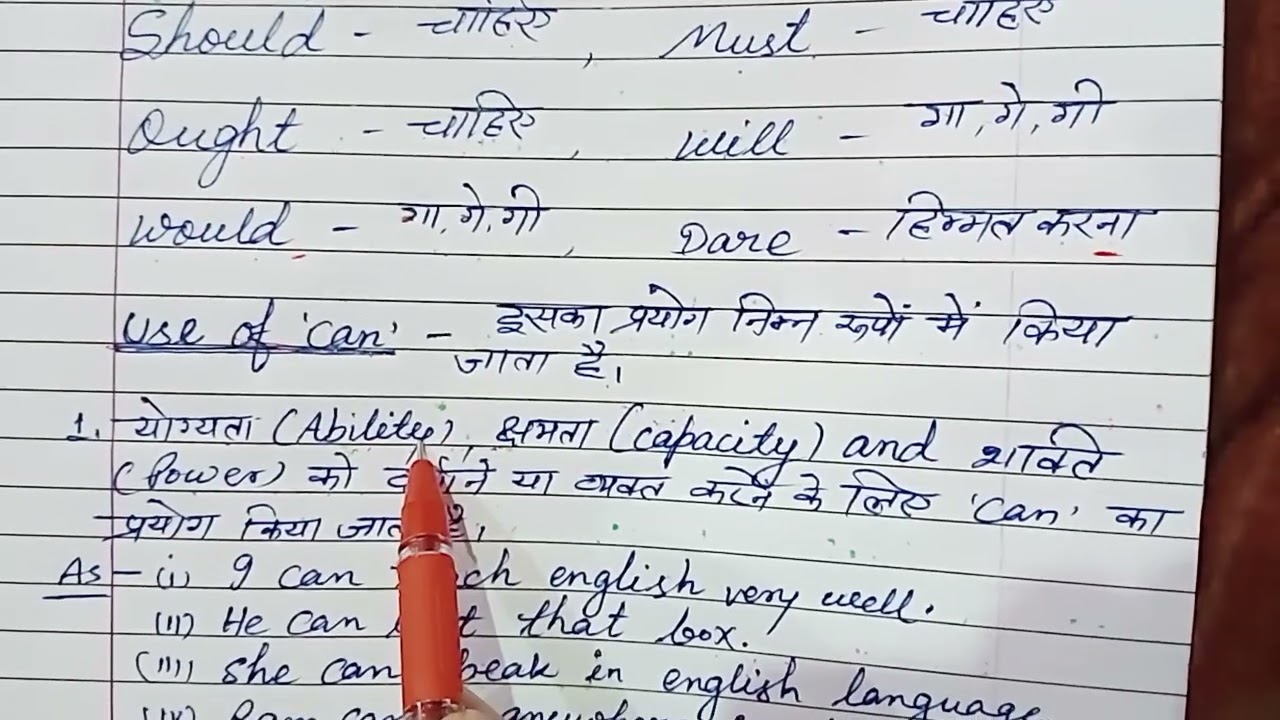 Should - चाहिए, Must - चाहिए
Ought - चाहिए, will - गा, गे, गी
would - गा, गे, गी, Dare - हिम्मत करना
Use of 'can' - इसका प्रयोग निम्न रूपों में किया
जाता है।
1. योग्यता (Ability), क्षमता (capacity) and शक्ति
(Power) को या व्यक्त करने के लिए 'Can' का
प्रयोग किया है।
As - (i) I can english very well.
(ii) He can that box.
(iii) She can in english language
(iv) Ram